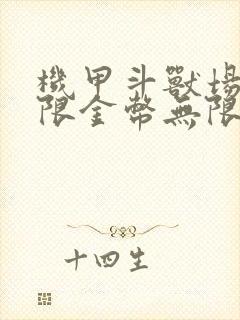 機甲斗獸場
限金幣無限
十四生